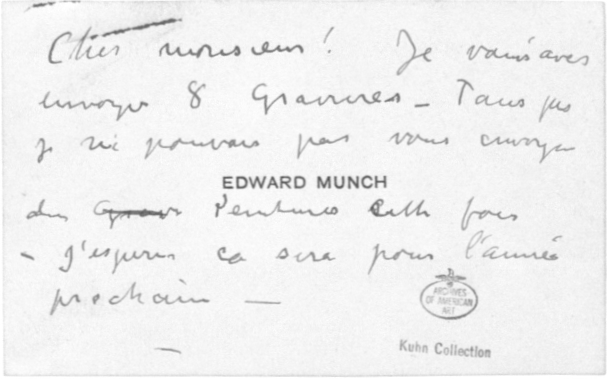 Cher monsieur! Je vous aves
envoyer 8 Gravures - Tans pis
je ne pouvais pas vous envoyer
EDWARD MUNCH
des Grav Peintures cette fois
- J'esperes ca sera pour l'année
prochain —
ARCHIVES
OF AMERICAN
ART
Kuhn Collection